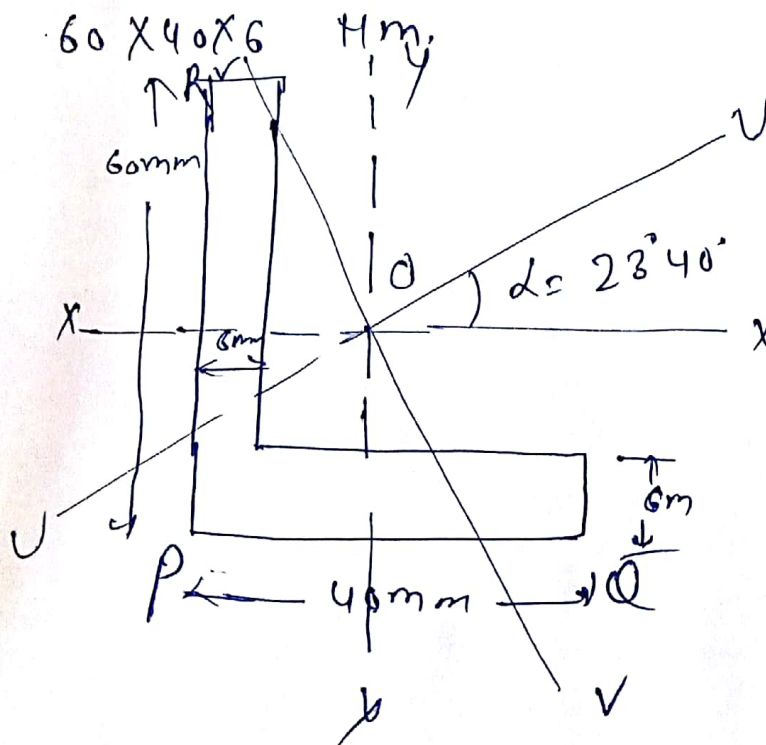 60 X 40 X 6 Hm,
y
R V
60mm
U
O
α = 23°40'
X
6mm
X
6m
U
P 40mm Q
V
y